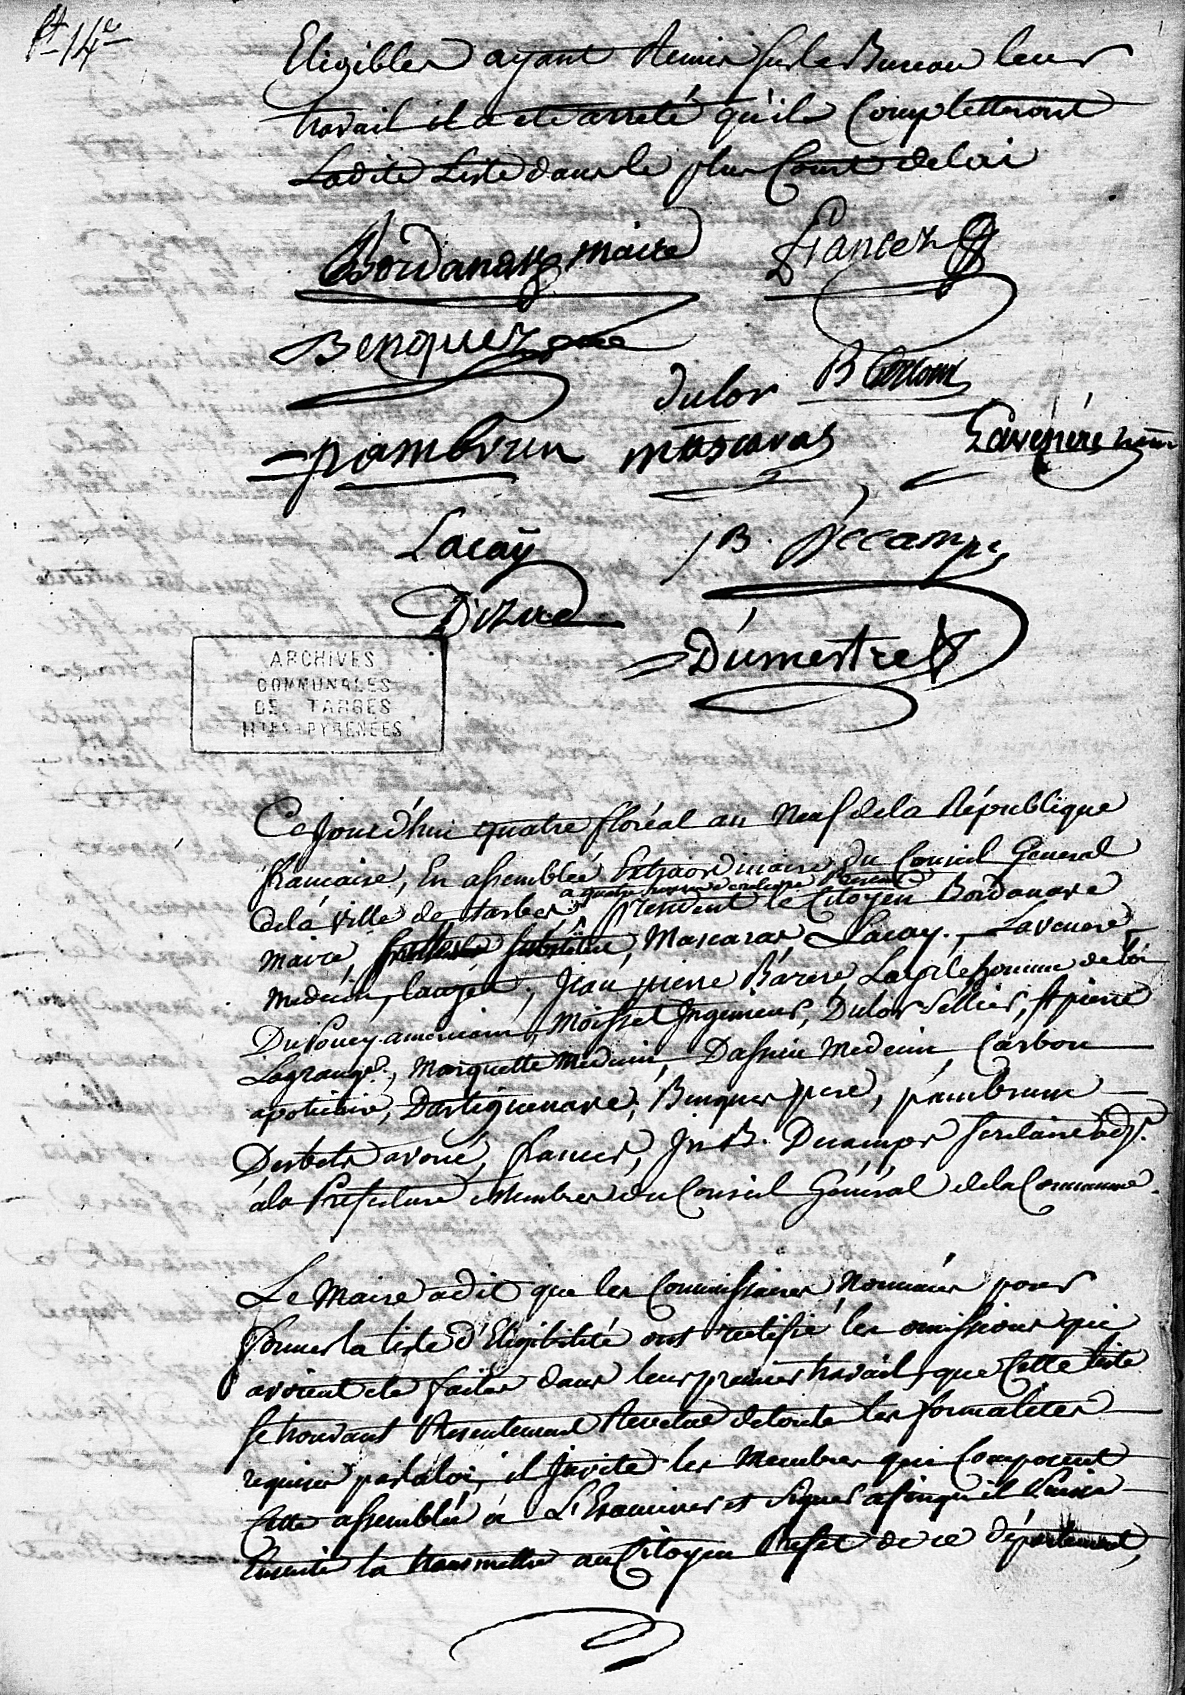 ft 14e
Eligibles ayant Remis sur le Bureau leur
travail il a été arrêté qu'ils Completteront
Ladite Liste dans le plus Court delai
Bordanave maire
Francez
Benquez pere
dulor
pambrun
mascaras
Lavenère
Lacay
JB. Décamps
Dizac
Dumestre
ARCHIVES
COMMUNALES
DE TARBES
HTES PYRENEES
Ce Jourd'hui quatre floréal an Neuf de la République
francaise, En assemblée Extraordinaire du Conseil General
a quatre heures de relevée
de la ville de tarbes, président le Citoyen Bordanave
maire, Mascaras Lacay, Lavenere
medecin, Jean pierre Barere, homme de loi
Dupouey americain, Moisset Ingenieur, Dulor Sellier, St pierre
Lagrange, Marquette Medecin, Dassieu Medecin Carbon
apoticaire, Dartiguenave, Benques pere, pambrun
Desbets avoué, francez, Jn B. Decamps
à la Préfecture Membres du Conseil Général de la Commune.
Le Maire a dit que les Commissaires Nommés pour
former la liste d'Eligibilité ont rectifié les omissions qui
avoient été faites dans leur premier travail, que Cette liste
se trouvant Presentement Revetue de toute les formalités
requises par la loi, il Invite les Membres qui Composent
Cette assemblée à L'Examiner et Signer afin qu'il Puisse
Ensuite la transmettre au Citoyen Prefet de ce département,